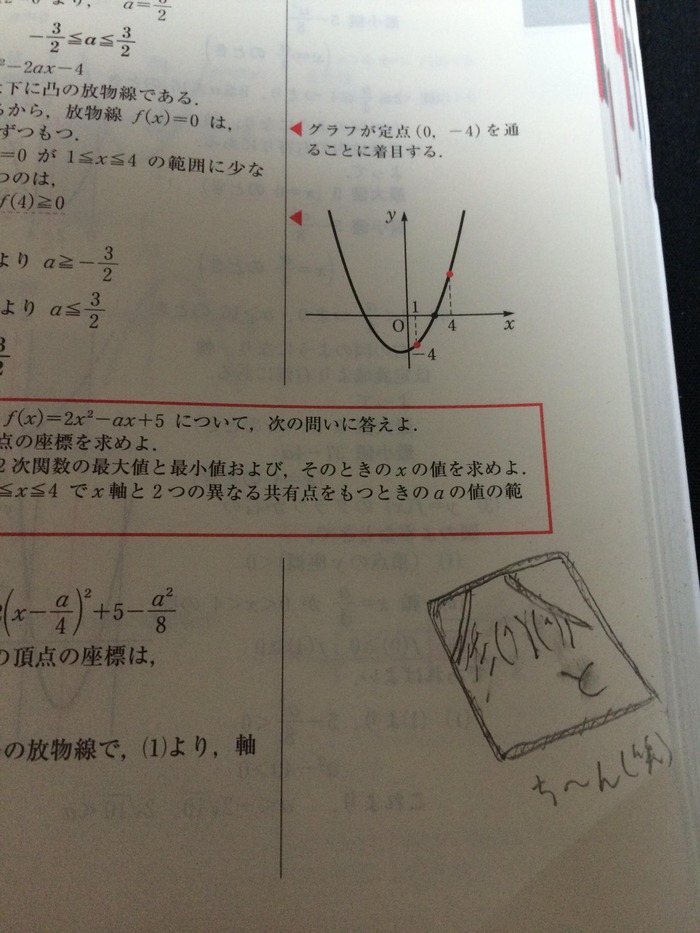 より, a=
-3/2≦a≦3/2
²-2ax-4
下に凸の放物線である.
から, 放物線 f(x)=0 は,
ずつもつ.
=0 が 1≦x≦4 の範囲に少な
つのは,
f(4)≧0
より a≧-3/2
より a≦3/2
グラフが定点(0, -4)を通
ることに着目する.
y
O 1 4 x
-4
f(x)=2x²-ax+5 について, 次の問いに答えよ.
点の座標を求めよ.
2次関数の最大値と最小値および, そのときのxの値を求めよ.
≦x≦4 でx軸と2つの異なる共有点をもつときのaの値の範
(x-a/4)²+5-a²/8
の頂点の座標は,
の放物線で, (1)より, 軸
と
ち〜ん(笑)